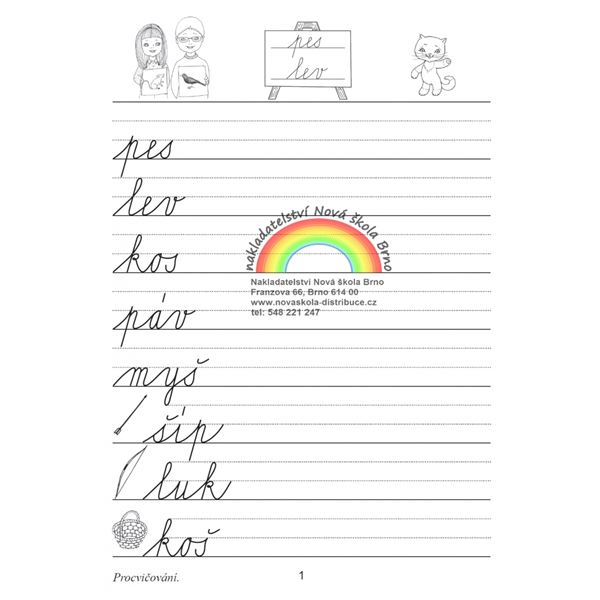 pes
lev
pes
lev
nakladatelství Nová škola Brno
Nakladatelství Nová škola Brno
Franzova 66, Brno 614 00
www.novaskola-distribuce.cz
tel: 548 221 247
kos
páv
myš
šíp
luk
koš
Procvičování.
1